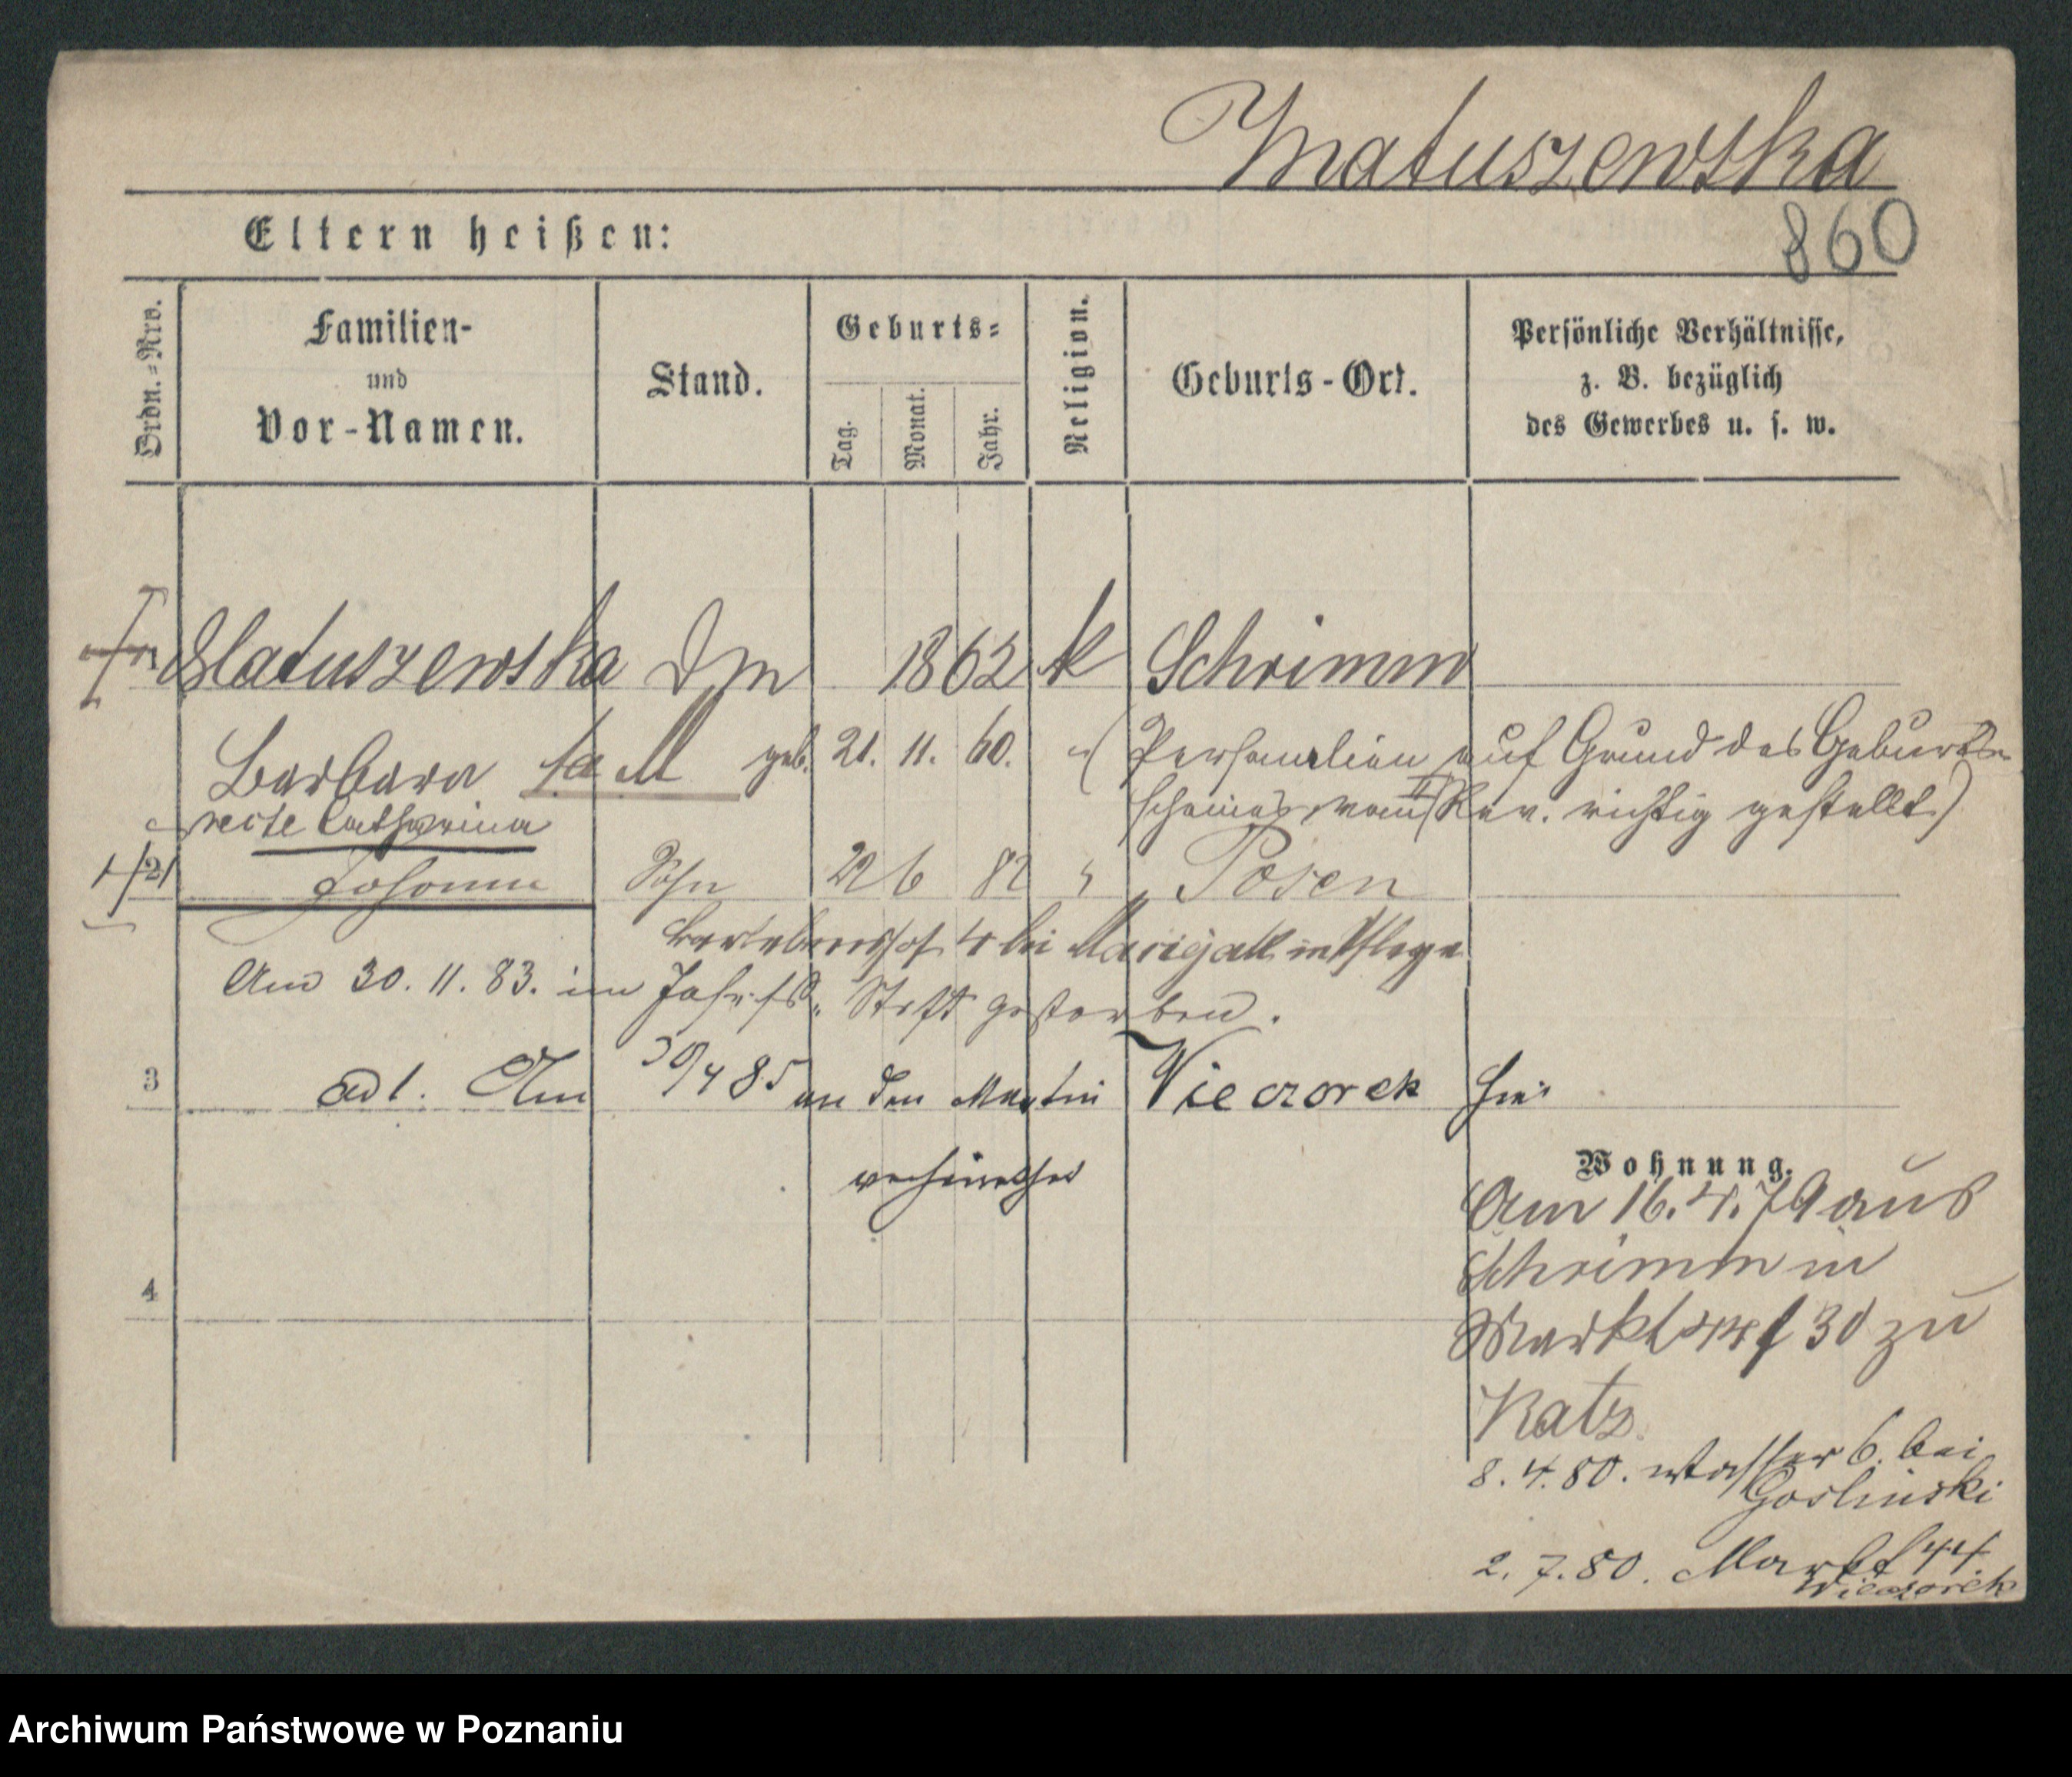 Matuszewska
860
Eltern heißen:
Ordn.-Nro.
Familien-
und
Vor-Namen.
Stand.
Geburts-
Tag.
Monat.
Jahr.
Religion.
Geburts-Ort.
Persönliche Verhältnisse,
z. B. bezüglich
des Gewerbes u. s. w.
Matuszewska Dm 1862 k Schrimm
Barbara geb. 21. 11. 60. (Personalien auf Grund des Geburts-
scheines vom Rev. richtig gestellt)
recte Catharina
2 Sohn 22 6 82 " Posen
bei in Pflege
Am 30. 11. 83. im Stift gestorben.
3 ad 1. Am 30/4 85 an den Martin Wieczorek hier
verheirathet
4
Wohnung.
Am 16. 4. 79 aus
Schrimm in
Markt 30 zu
Katz.
8. 4. 80. Wasser 6. bei
Goslinski
2. 7. 80. Markt 44
Wieczorek
Archiwum Państwowe w Poznaniu